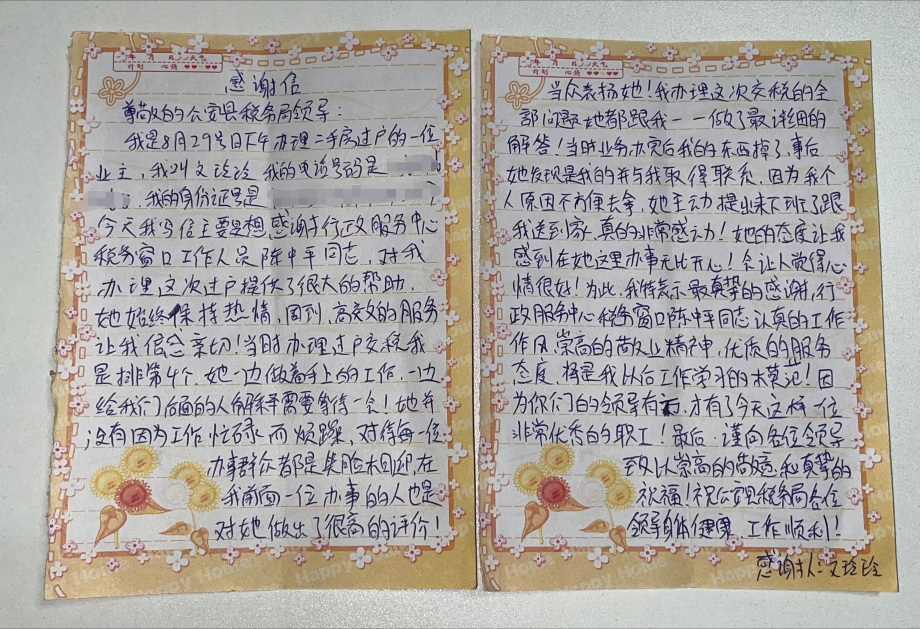 年 月 日 天气
计划 心情
感谢信
尊敬的公安县税务局领导：
我是8月29号日下午办理二手房过户的一位
业主，我叫文玲玲 我的电话号码是
，我的身份证号是
今天我写信主要是想感谢行政服务中心
税务窗口工作人员陈中平同志，对我
办理这次过户提供了很大的帮助，
她始终保持热情，周到，高效的服务
让我倍感亲切！当时办理过户交税我
是排第4个，她一边做着手上的工作，一边
给我们后面的人解释需要等待一会！她并
没有因为工作忙碌而烦躁，对待每一位
办事群众都是笑脸相迎，在
我前面一位办事的人也是
对她做出了很高的评价！
Happy Home
年 月 日 天气
计划 心情
当众表扬她！我办理这次交税的全
部问题她都跟我一一做了最详细的
解答！当时业务办完后我的东西掉了，事后
她发现是我的并与我取得联系，因为我个
人原因不方便去拿，她主动提出来下班了跟
我送到家，真的非常感动！她的态度让我
感到在她这里办事无比开心！会让人觉得心
情很好！为此，我特表示最真挚的感谢，行
政服务中心税务窗口陈中平同志认真的工作
作风，崇高的敬业精神，优质的服务
态度，将是我以后工作学习的木莫记！因
为你们的领导有方，才有了今天这样一位
非常优秀的职工！最后，谨向各位领导
致以崇高的敬意和真挚的
祝福！祝公安县税务局各位
领导身体健康，工作顺利！
感谢人：文玲玲
Happy Home